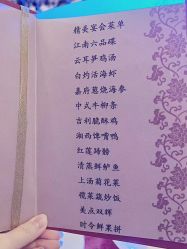 精美宴会菜单
江南六品碟
云耳笋鸡汤
白灼活海虾
嘉府葱烧海参
中式牛柳条
吉利脆酥鸡
湘西馋嘴鸭
红莲蹄膀
清蒸鲜鲈鱼
上汤菊花菜
榄菜疏炒饭
美点双辉
时令鲜果拼